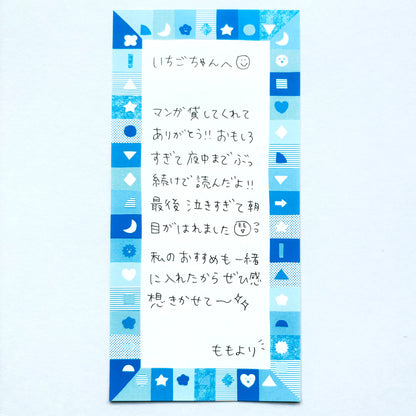 いちごちゃんへ
マンガ貸してくれて
ありがとう!! おもしろ
すぎて夜中までぶっ
続けで読んだよ!!
最後泣きすぎて朝
目がはれました
私のおすすめも一緒
に入れたからぜひ感
想きかせて〜
ももより